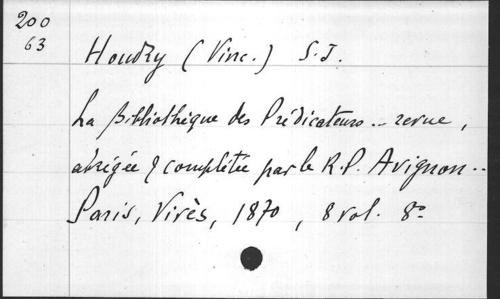 200
63
Houdry (Vinc.) S.J.
La Bibliothèque des Prédicateurs .. revue,
abrégée & complétée par le R.P. Avignon..
Paris, Vivès, 1870, 8 vol. 8º